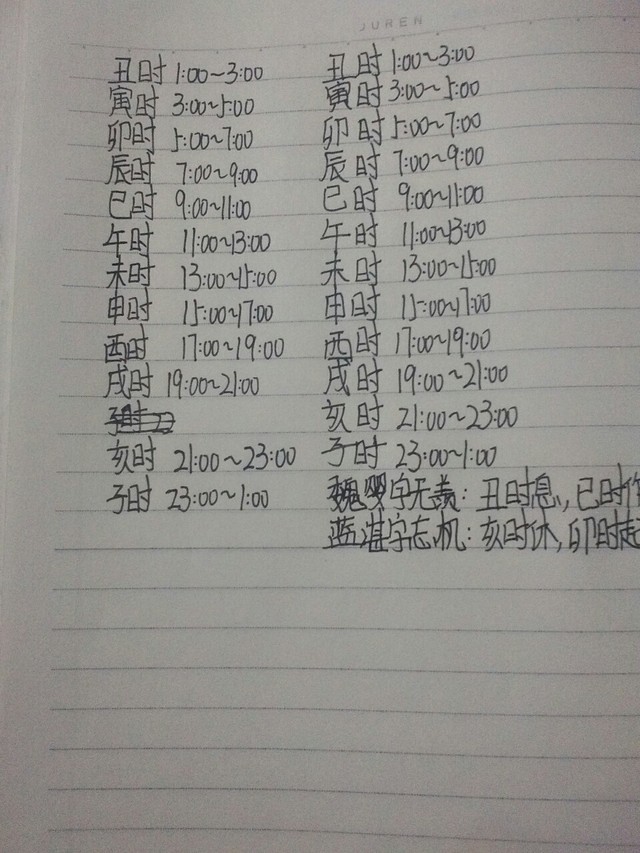 JUREN
丑时 1:00~3:00
寅时 3:00~5:00
卯时 5:00~7:00
辰时 7:00~9:00
巳时 9:00~11:00
午时 11:00~13:00
未时 13:00~15:00
申时 15:00~17:00
酉时 17:00~19:00
戌时 19:00~21:00
亥时 21:00~23:00
子时 23:00~1:00
丑时 1:00~3:00
寅时 3:00~5:00
卯时 5:00~7:00
辰时 7:00~9:00
巳时 9:00~11:00
午时 11:00~13:00
未时 13:00~15:00
申时 15:00~17:00
酉时 17:00~19:00
戌时 19:00~21:00
亥时 21:00~23:00
子时 23:00~1:00
魏婴字无羡：丑时息，巳时作
蓝湛字忘机：亥时休，卯时起